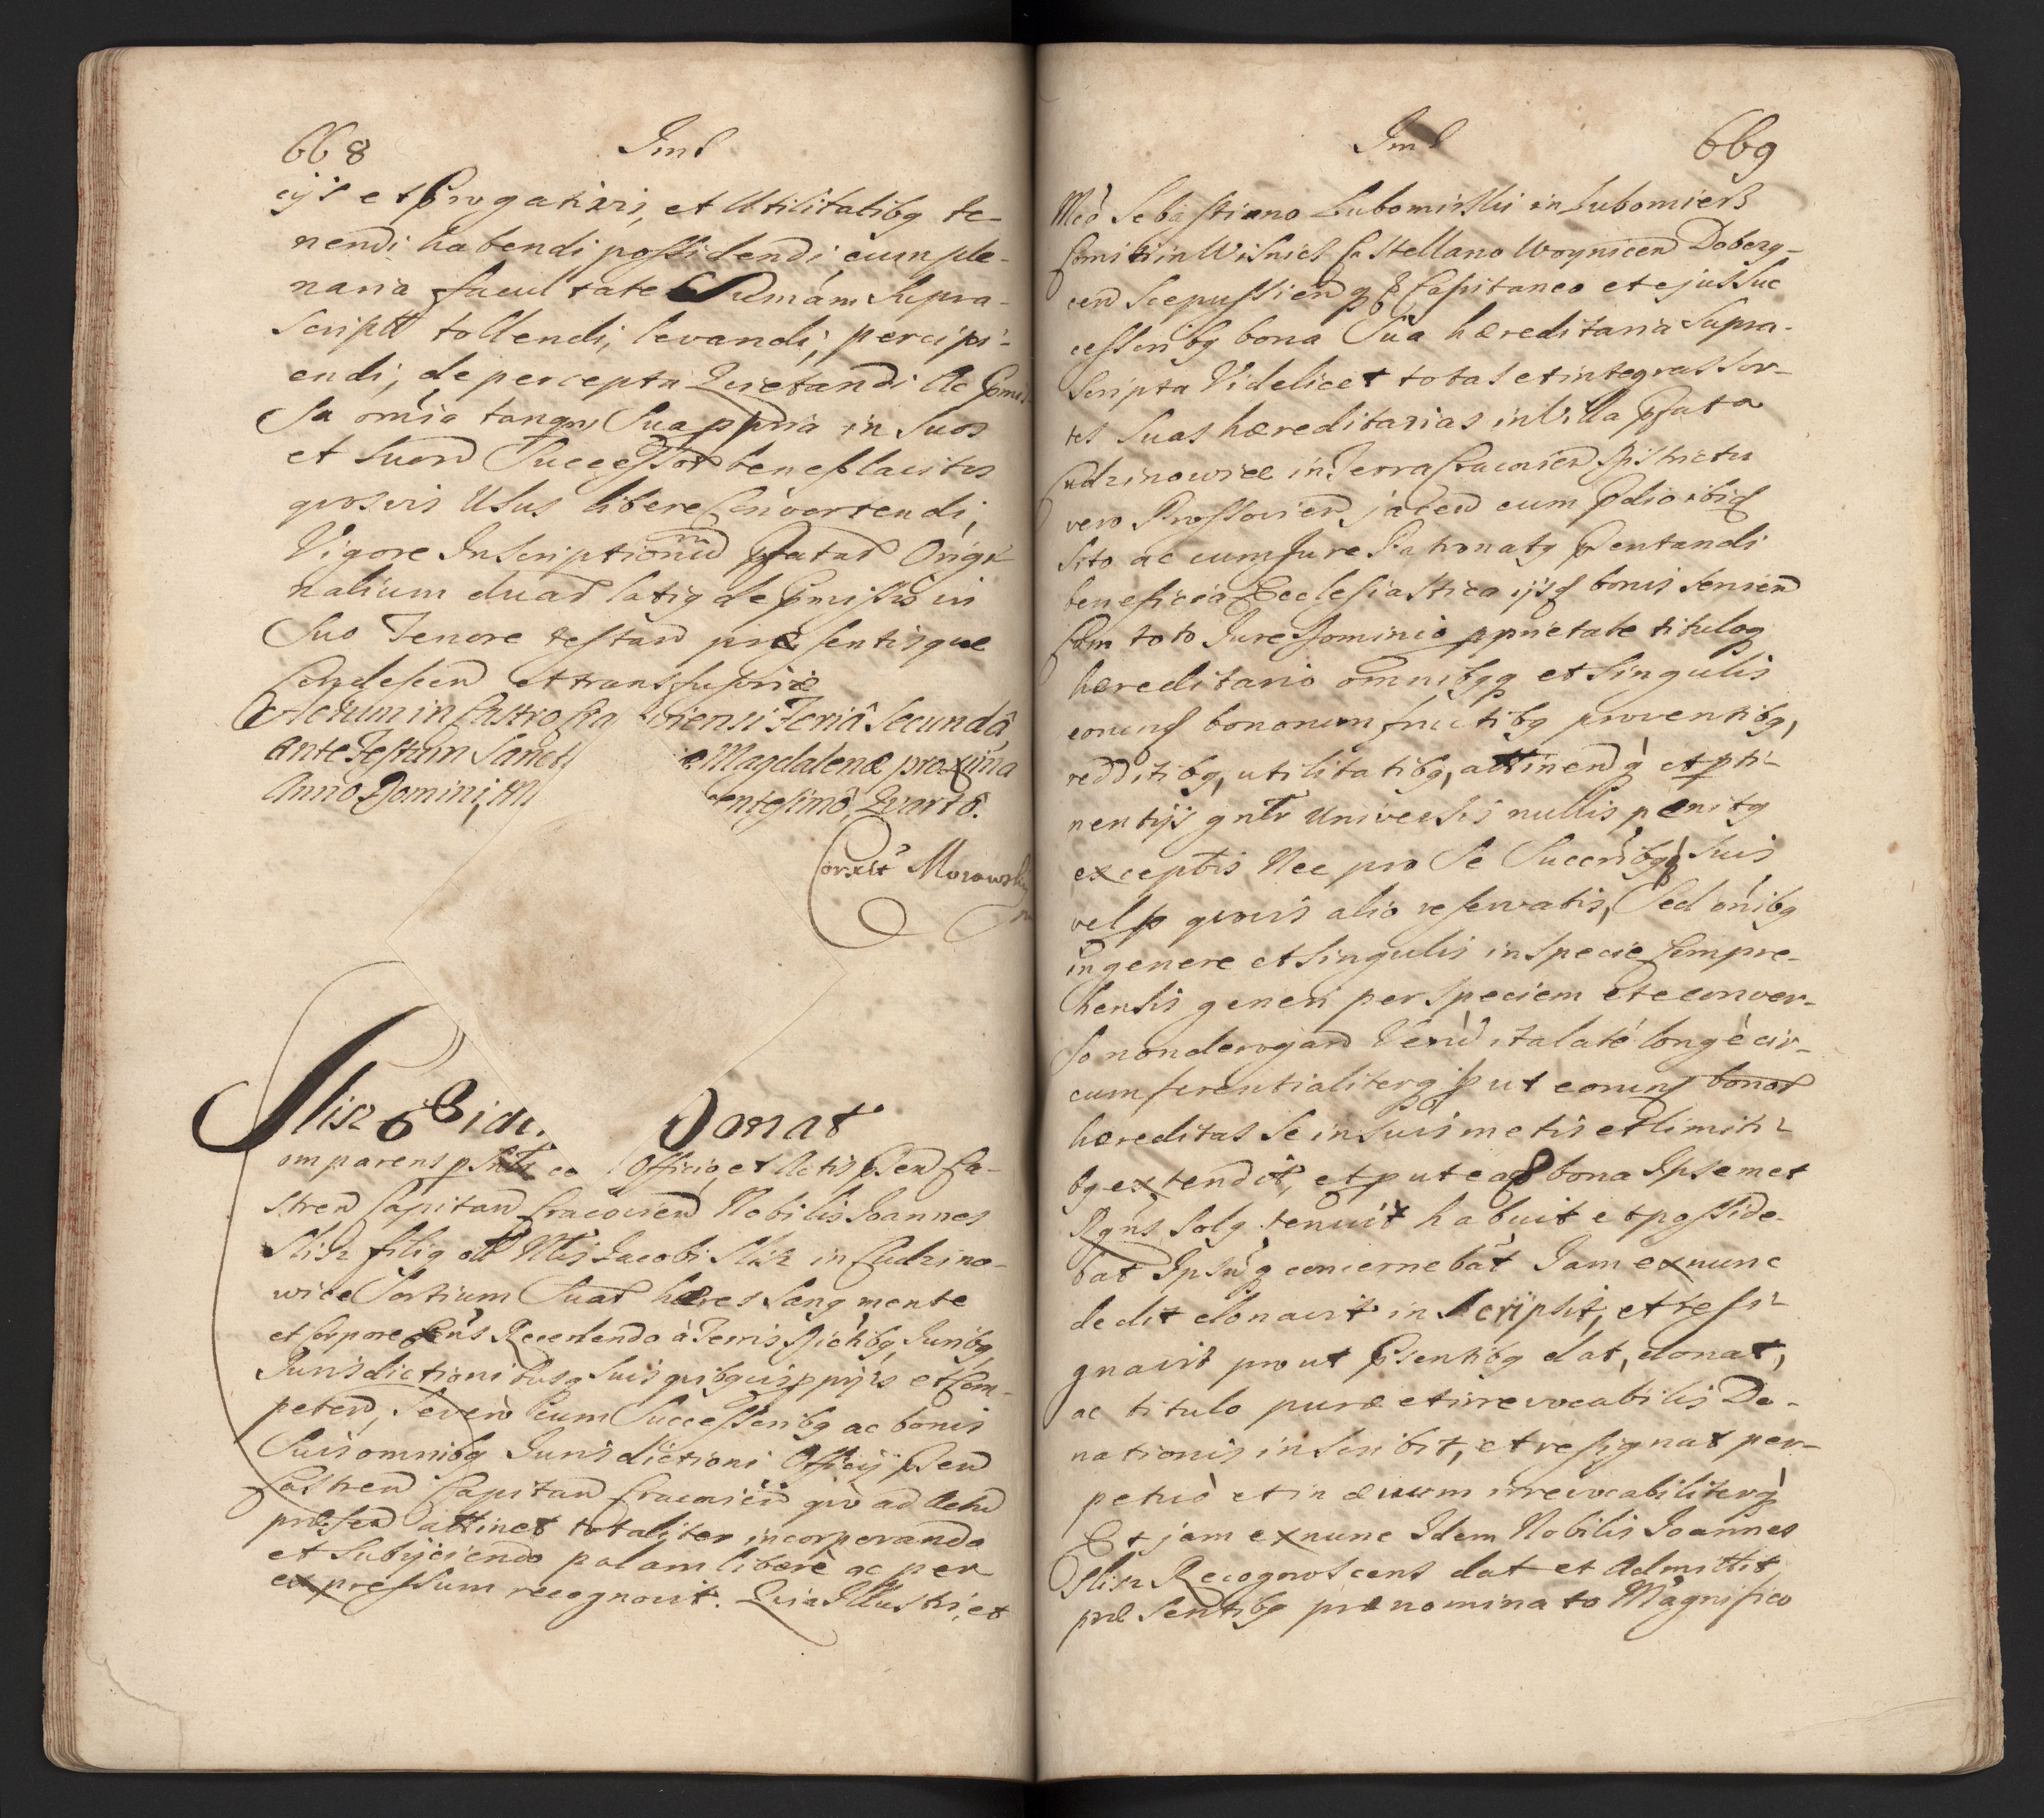 668 Imd
cijs et Prrogativis, et Utilitatibg te-
nendi habendi possidendi, cum ple-
naria facultate Summam Supra-
scriptt tollendi, levandi, percipi-
endi, de percepta Quietandi Ac
oia tanqm Sua ppria in Suos
et Suord Successord beneplacitos
quosvis Usus libere Convertendi,
Vigore Inscriptionu Pfatad Origi-
nalium duad latig de Pmissis in
Suo Tenore testand præsentisque
Condescen et transfusoriæ
Actum in Castro Cra viensi Feriâ Secundâ
Ante Festum Sanct æ Magdalenæ proxima
Anno Domini, M entesimô, Quartô.
Corxit Morawski
Slisz Donat
omparens psntr Officiq et Actis Psend Ca-
strend Capitand Cracoviend Nobilis Joannes
Slisz filig oll Nlis Jacobi Slisz in Cudzino-
wice Sortium Suad hæres Sang mente
et Corpore Exns Recedendo à Terris Districtibg, Juribg,
Jurisdictionibusq Suis quibgvis pprijs et Com-
petend, Severò cum Successoribg ac bonis
Suis omnibg Jurisdictioni Officij Psend
Castrend Capitand Cracoviend quò ad Actu
præsend attinet totaliter incorporando
et Subijciendo palam libere ac per
expressum recognovit. Quia Illustri, et
Imd 669
Mco Sebastiano Lubomirski in Lubomierz
Comiti in Wisnicz Castellano Woynicend Dobczy-
cend Scepussiend q Capitaneo et ejus Suc
cessoribg bona Sua hæreditaria Supra-
scripta Videlicet totas et integras Sor-
tes Suas hæreditarias in Villa Pfata
Cudzinowice in Terra Cracovien Districtu
vero Prossoviend jacend cum Pdio ibid
Sito ac cum Jure Patronatg Psentandi
beneficia Ecclesiastica ijsd bonis Servien
Cum toto Jure Dominio pprietate tituloq
hæreditario omnibgq et Singulis
eorund bonorum fructibg proventibg,
redditibg, utilitatibg, attinend q et pti-
nentijs gnlr Universis nullis penitg
exceptis Nec pro Se Succribgq Suis
vel p quovis alio reservatis, Sed oibg
in genere et Singulis in Specie Compre-
hensis generi per Speciem et e conver-
so non derogand Verud ita latè longè cir-
cumferentialiterq put eorund bonod
hæreditas Se in Suis metis et limiti-
bg extendit, et put ead bona Ipsemet
Rgns Solg tenuit habuit et posside-
bat Ipsuq concernebat Jam ex nunc
dedit donavit inscripsit, et resi-
gnavit prout Psentibg dat, donat,
ac titulo puræ et irrevocabilis Do-
nationis inscribit, et resignat per-
petuò et in ævum irrevocabiliterq
Et jam ex nunc Idem Nobilis Joannes
Slisz Recognoscens dat et Admittit
præsentibg prænominato Magnifico